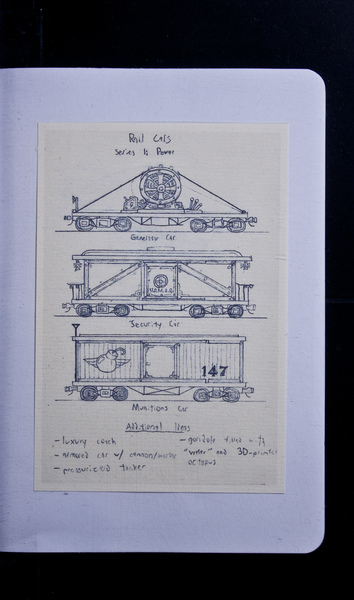 Rail Cars
Series 1: Power
Generator Car
Security Car
147
Munitions Car
Additional Items
- luxury coach
- armored car w/ cannon/
- pressurized tanker
- gondola filled with
"water" and 3D-printed
octopus